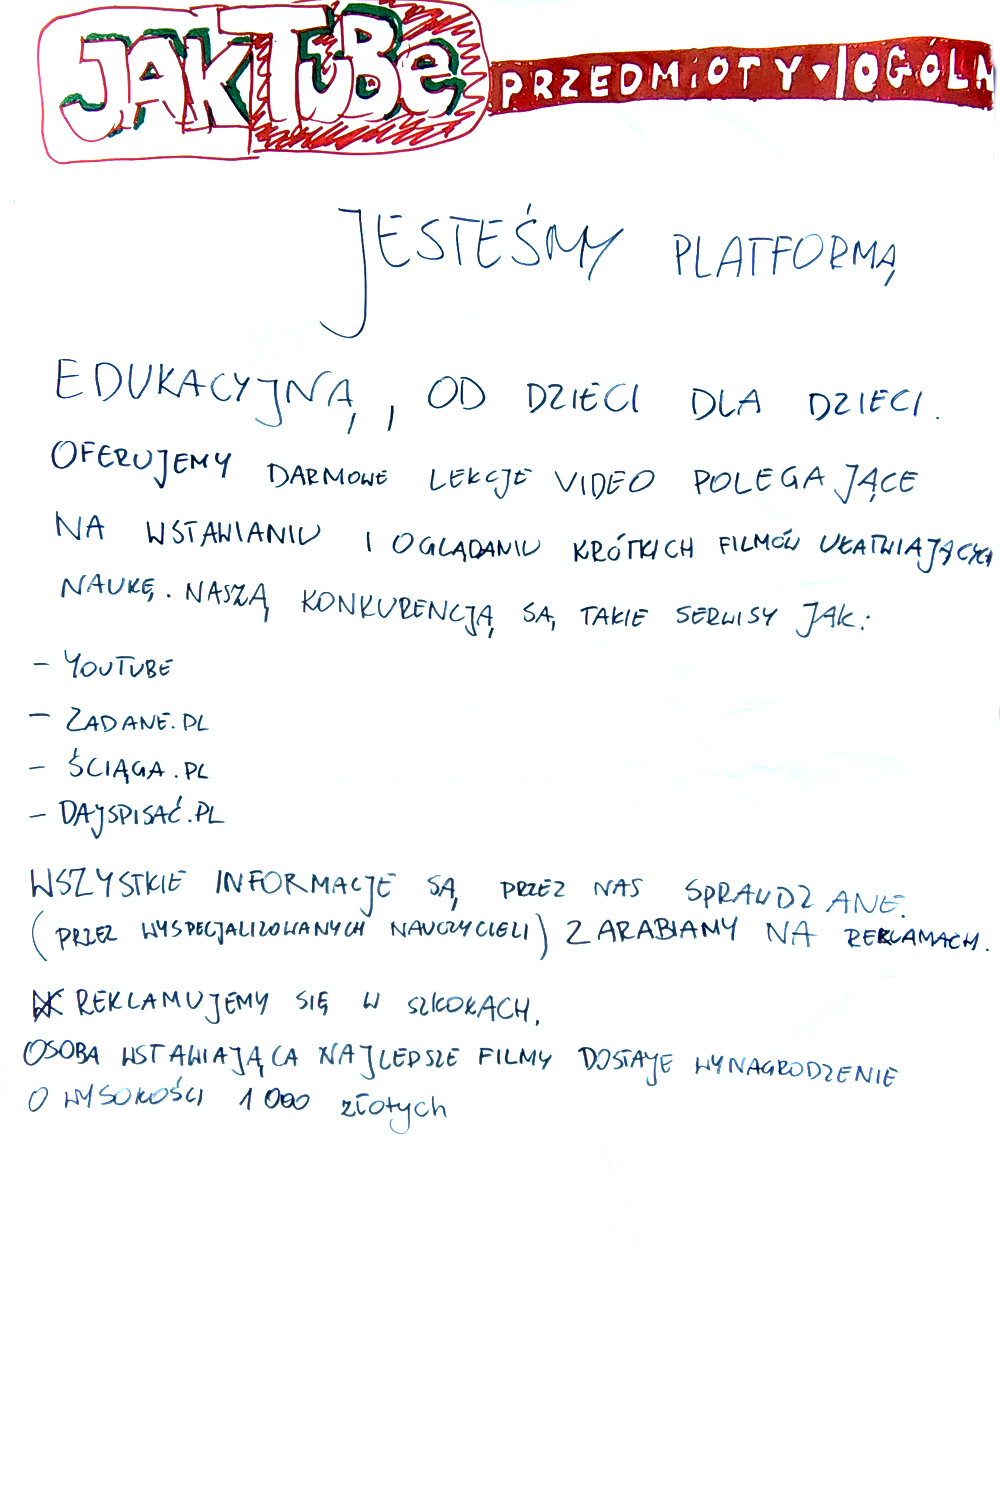 JAKTUBe PRZEDMiOTY ▾ | OGÓLN
JESTEŚMY PLATFORMĄ
EDUKACYJNĄ, OD DZIECI DLA DZIECI.
OFERUJEMY DARMOWE LEKCJE VIDEO POLEGAJĄCE
NA WSTAWIANIU I OGLĄDANIU KRÓTKICH FILMÓW UŁATWIAJĄCYCH
NAUKĘ. NASZĄ KONKURENCJĄ SĄ TAKIE SERWISY JAK:
- YOUTUBE
- ZADANE.PL
- ŚCIĄGA.PL
- DAJSPISAĆ.PL
WSZYSTKIE INFORMACJE SĄ PRZEZ NAS SPRAWDZANE.
(PRZEZ WYSPECJALIZOWANYCH NAUCZYCIELI) ZARABIAMY NA REKLAMACH.
REKLAMUJEMY SIĘ W SZKOŁACH.
OSOBA WSTAWIAJĄCA NAJLEPSZE FILMY DOSTAJE WYNAGRODZENIE
O WYSOKOŚCI 1000 złotych